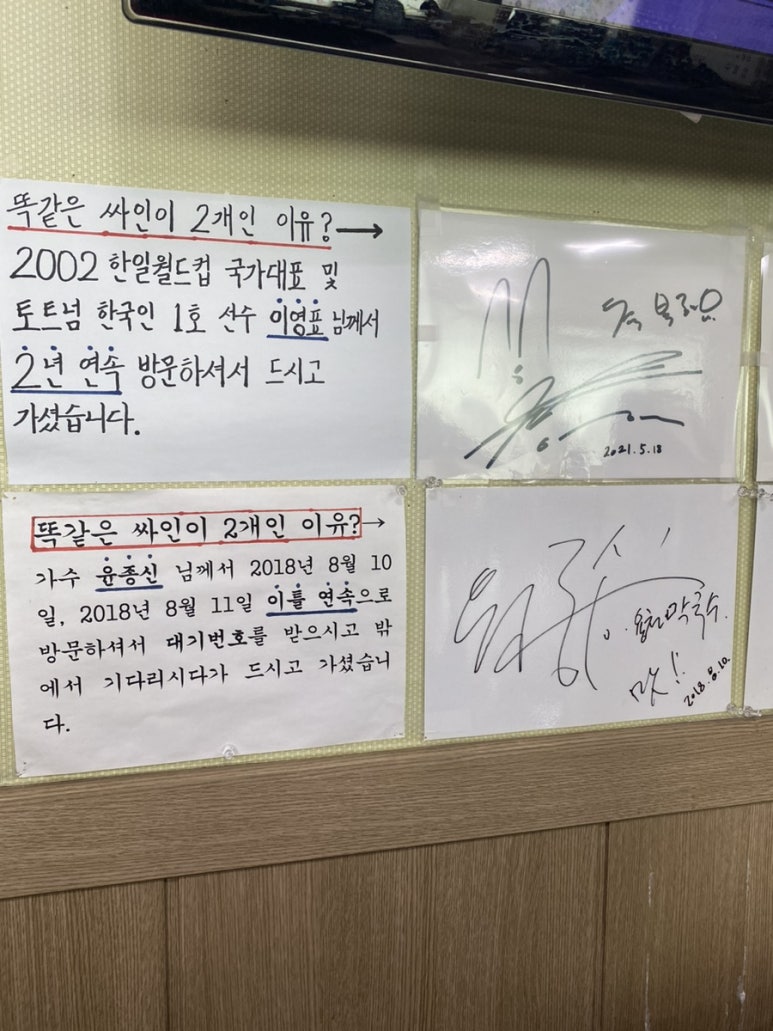 똑같은 싸인이 2개인 이유? →
2002 한일월드컵 국가대표 및
토트넘 한국인 1호 선수 이영표 님께서
2년 연속 방문하셔서 드시고
가셨습니다.
2021.5.18
똑같은 싸인이 2개인 이유?→
가수 윤종신 님께서 2018년 8월 10
일, 2018년 8월 11일 이틀 연속으로
방문하셔서 대기번호를 받으시고 밖
에서 기다리시다가 드시고 가셨습니
다.
막국수.
2018.8.10